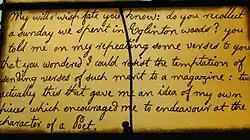 My will o' wisp fate you know: do you recollect
a Sunday we spent in Eglinton woods? you
told me on my repeating some verses to you
that you wondered I could resist the temptation of
sending verses of such merit to a magazine: 'twas
actually this that gave me an idea of my own
pieces which encouraged me to endeavour at the
character of a Poet.